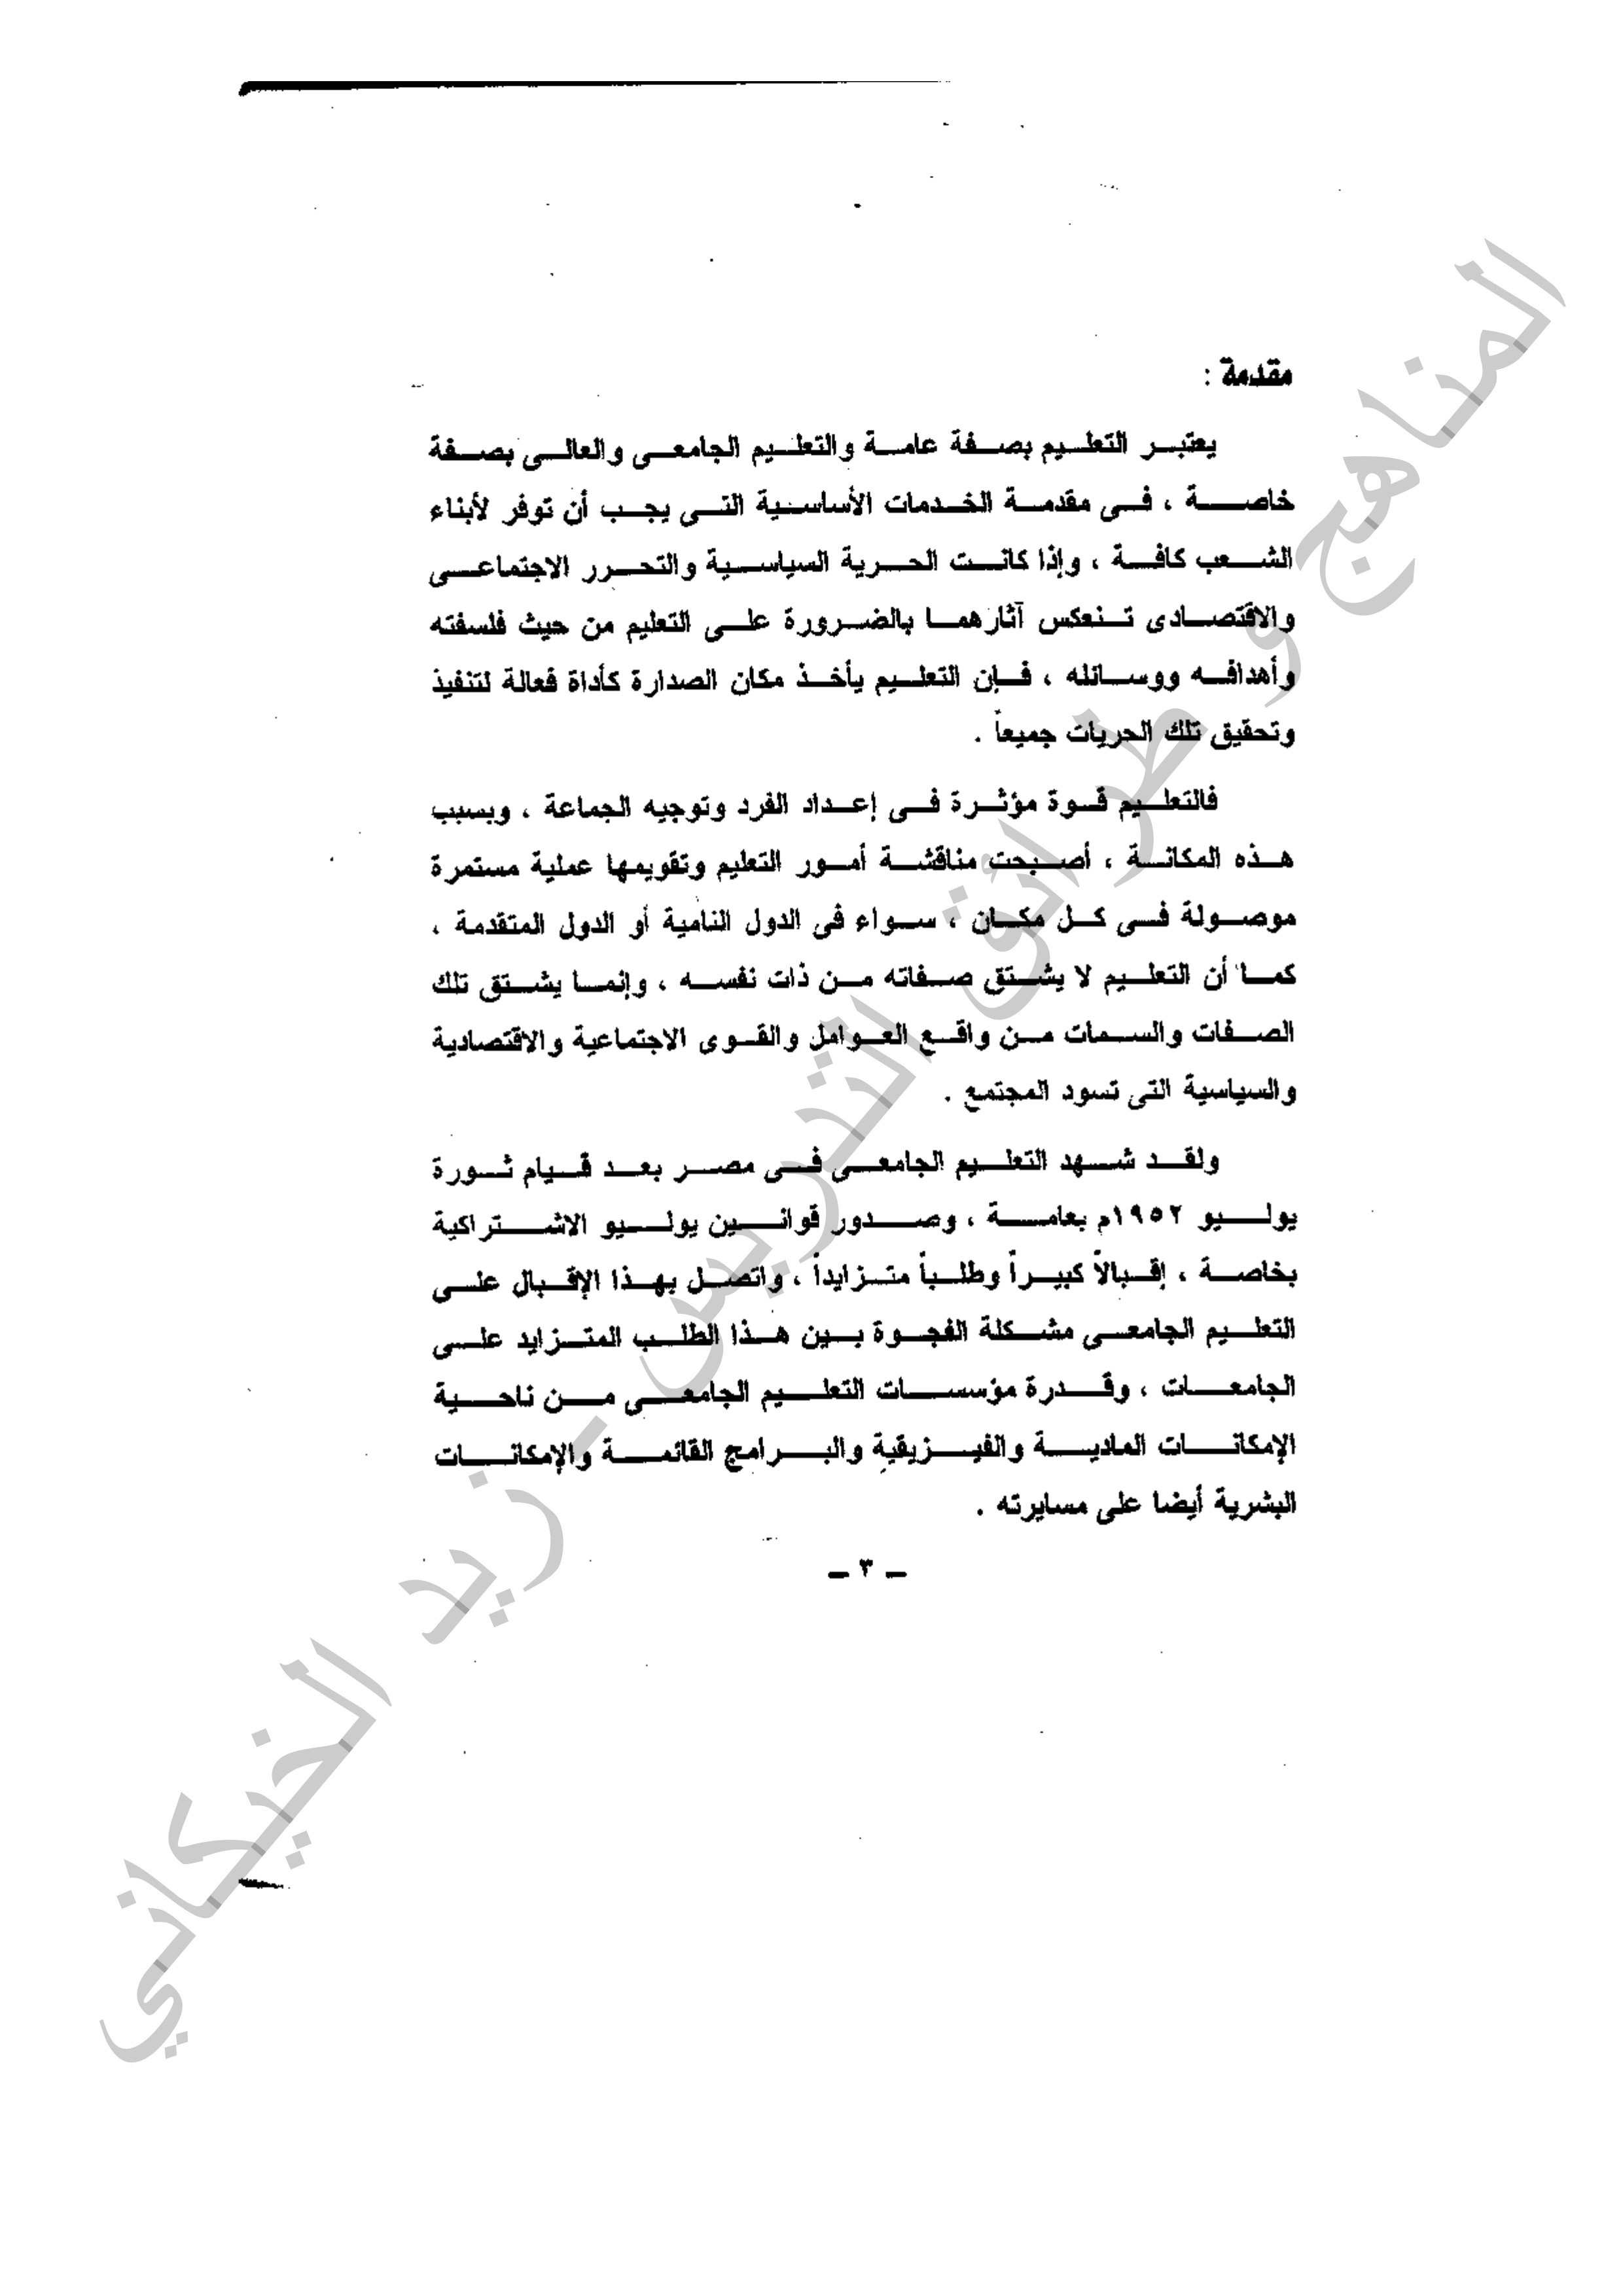 مقدمة :
يعتبر التعليم بصفة عامة والتعليم الجامعى والعالى بصفة
خاصة ، فى مقدمة الخدمات الأساسية التى يجب أن توفر لأبناء
الشعب كافة ، وإذا كانت الحرية السياسية والتحرر الاجتماعى
والاقتصادى تنعكس آثارهما بالضرورة على التعليم من حيث فلسفته
وأهدافه ووسائله ، فإن التعليم يأخذ مكان الصدارة كأداة فعالة لتنفيذ
وتحقيق تلك الحريات جميعاً .
فالتعليم قوة مؤثرة فى إعداد الفرد وتوجيه الجماعة ، وبسبب
هذه المكانة ، أصبحت مناقشة أمور التعليم وتقويمها عملية مستمرة
موصولة فى كل مكان ، سواء فى الدول النامية أو الدول المتقدمة ،
كما أن التعليم لا يشتق صفاته من ذات نفسه ، وإنما يشتق تلك
الصفات والسمات من واقع العوامل والقوى الاجتماعية والاقتصادية
والسياسية التى تسود المجتمع .
ولقد شهد التعليم الجامعى فى مصر بعد قيام ثورة
يوليو ١٩٥٢م بعامة ، وصدور قوانين يوليو الاشتراكية
بخاصة ، إقبالاً كبيراً وطلباً متزايداً ، واتصل بهذا الإقبال على
التعليم الجامعى مشكلة الفجوة بين هذا الطلب المتزايد على
الجامعات ، وقدرة مؤسسات التعليم الجامعى من ناحية
الإمكانات المادية والفيزيقية والبرامج القائمة والإمكانات
البشرية أيضا على مسايرته .
ــ ٣ ــ
المناهج و طرائق التدريس - زيد الخيكاني